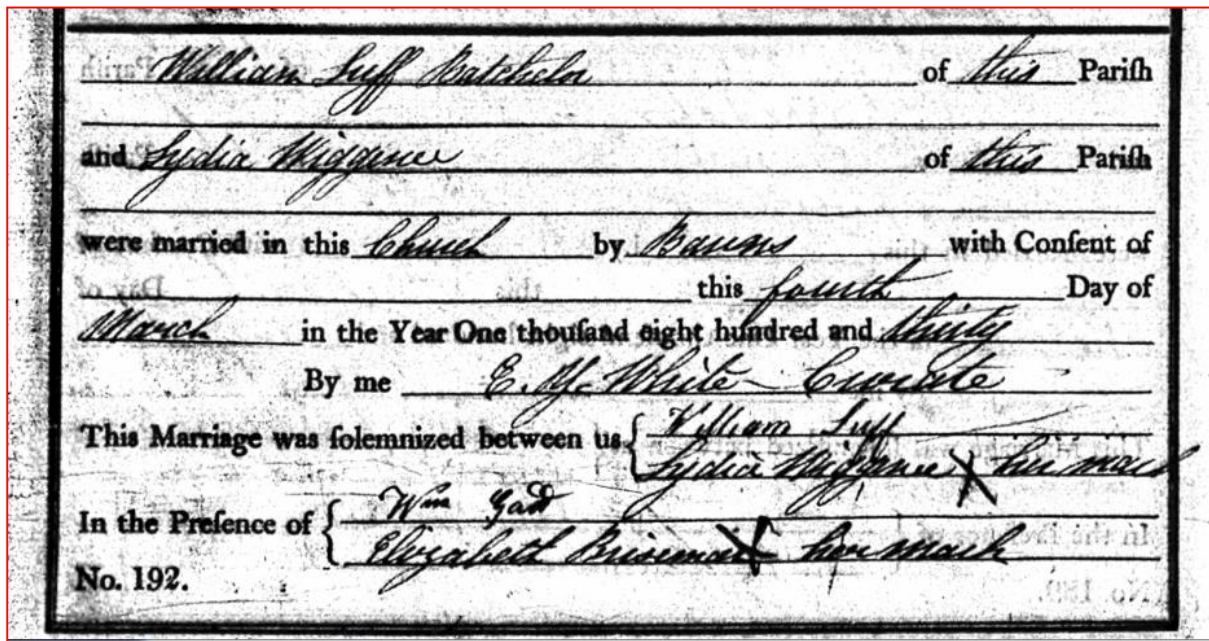 William Luff Batchelor of this Pariſh
and Lydia Wiggince of this Pariſh
were married in this Church by Banns with Conſent of
this fourth Day of
March in the Year One thouſand eight hundred and thirty
By me E. White Curate
This Marriage was ſolemnized between us William Luff
Lydia Wiggince X her mark
In the Preſence of Wm
Elizabeth X her mark
No. 192.